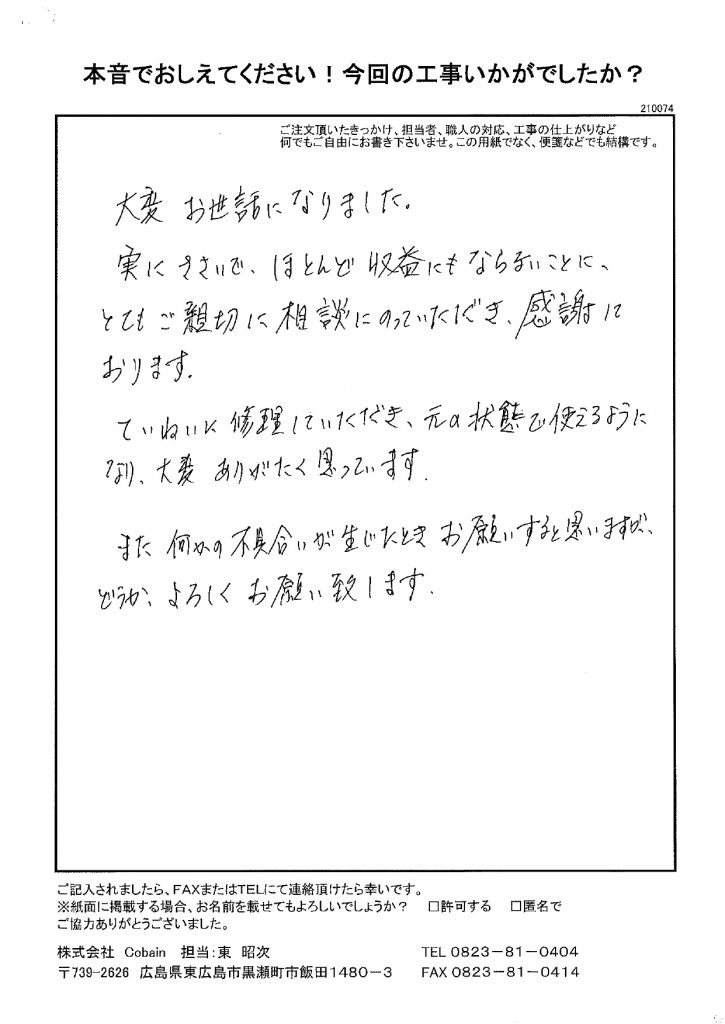 本音でおしえてください！今回の工事いかがでしたか？
210074
ご注文頂いたきっかけ、担当者、職人の対応、工事の仕上がりなど
何でもご自由にお書き下さいませ。この用紙でなく、便箋などでも結構です。
大変 お世話になりました。
実にささいで、ほとんど収益にもならないことに、
とてもご親切に相談にのっていただき、感謝して
おります。
ていねいに修理していただき、元の状態で使えるように
なり、大変ありがたく思っています。
また何かの不具合いが生じたときお願いすると思いますが、
どうか、よろしくお願い致します。
ご記入されましたら、FAXまたはTELにて連絡頂けたら幸いです。
※紙面に掲載する場合、お名前を載せてもよろしいでしょうか？ □許可する □匿名で
ご協力ありがとうございました。
株式会社 Cobain 担当：東 昭次 TEL 0823-81-0404
〒739-2626 広島県東広島市黒瀬町市飯田1480-3 FAX 0823-81-0414